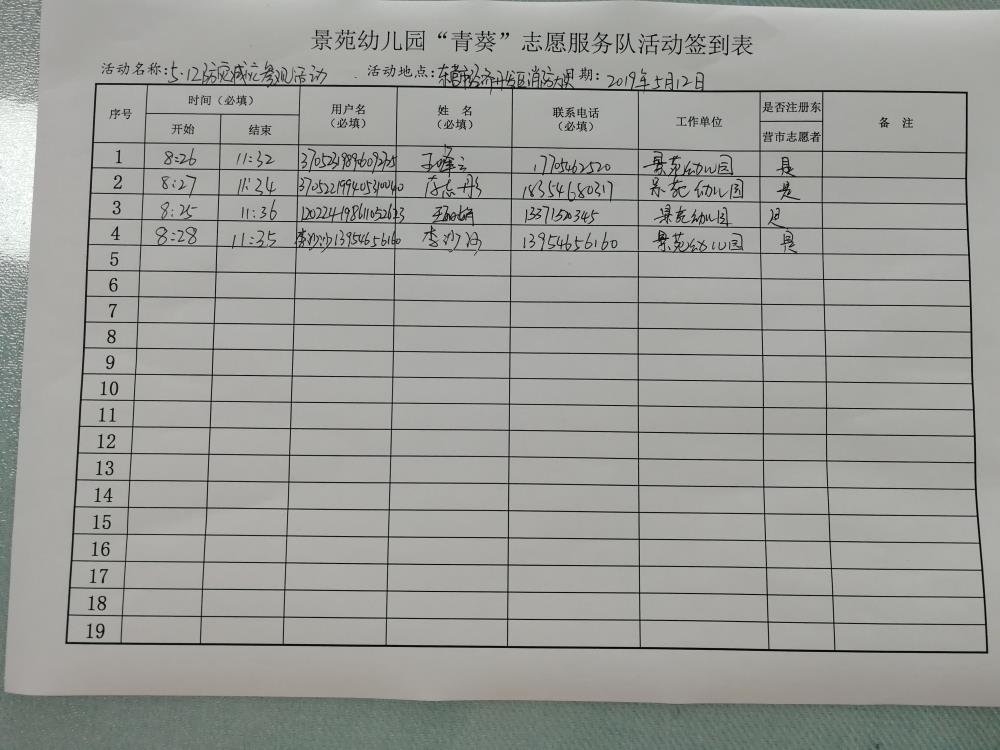 景苑幼儿园“青葵”志愿服务队活动签到表
活动名称：5.12防灾减灾参观活动 活动地点：东营市经济开发区消防大队 日期： 2019年5月12日
序号 时间（必填） 用户名（必填） 姓 名（必填） 联系电话（必填） 工作单位 是否注册东营市志愿者 备 注
开始 结束
1 8:26 11:32 17705462520 景苑幼儿园 是
2 8:27 11:34 18354680317 景苑幼儿园 是
3 8:25 11:36 13371520345 景苑幼儿园 是
4 8:28 11:35 李沙沙13954656160 李沙沙 13954656160 景苑幼儿园 是
5
6
7
8
9
10
11
12
13
14
15
16
17
18
19